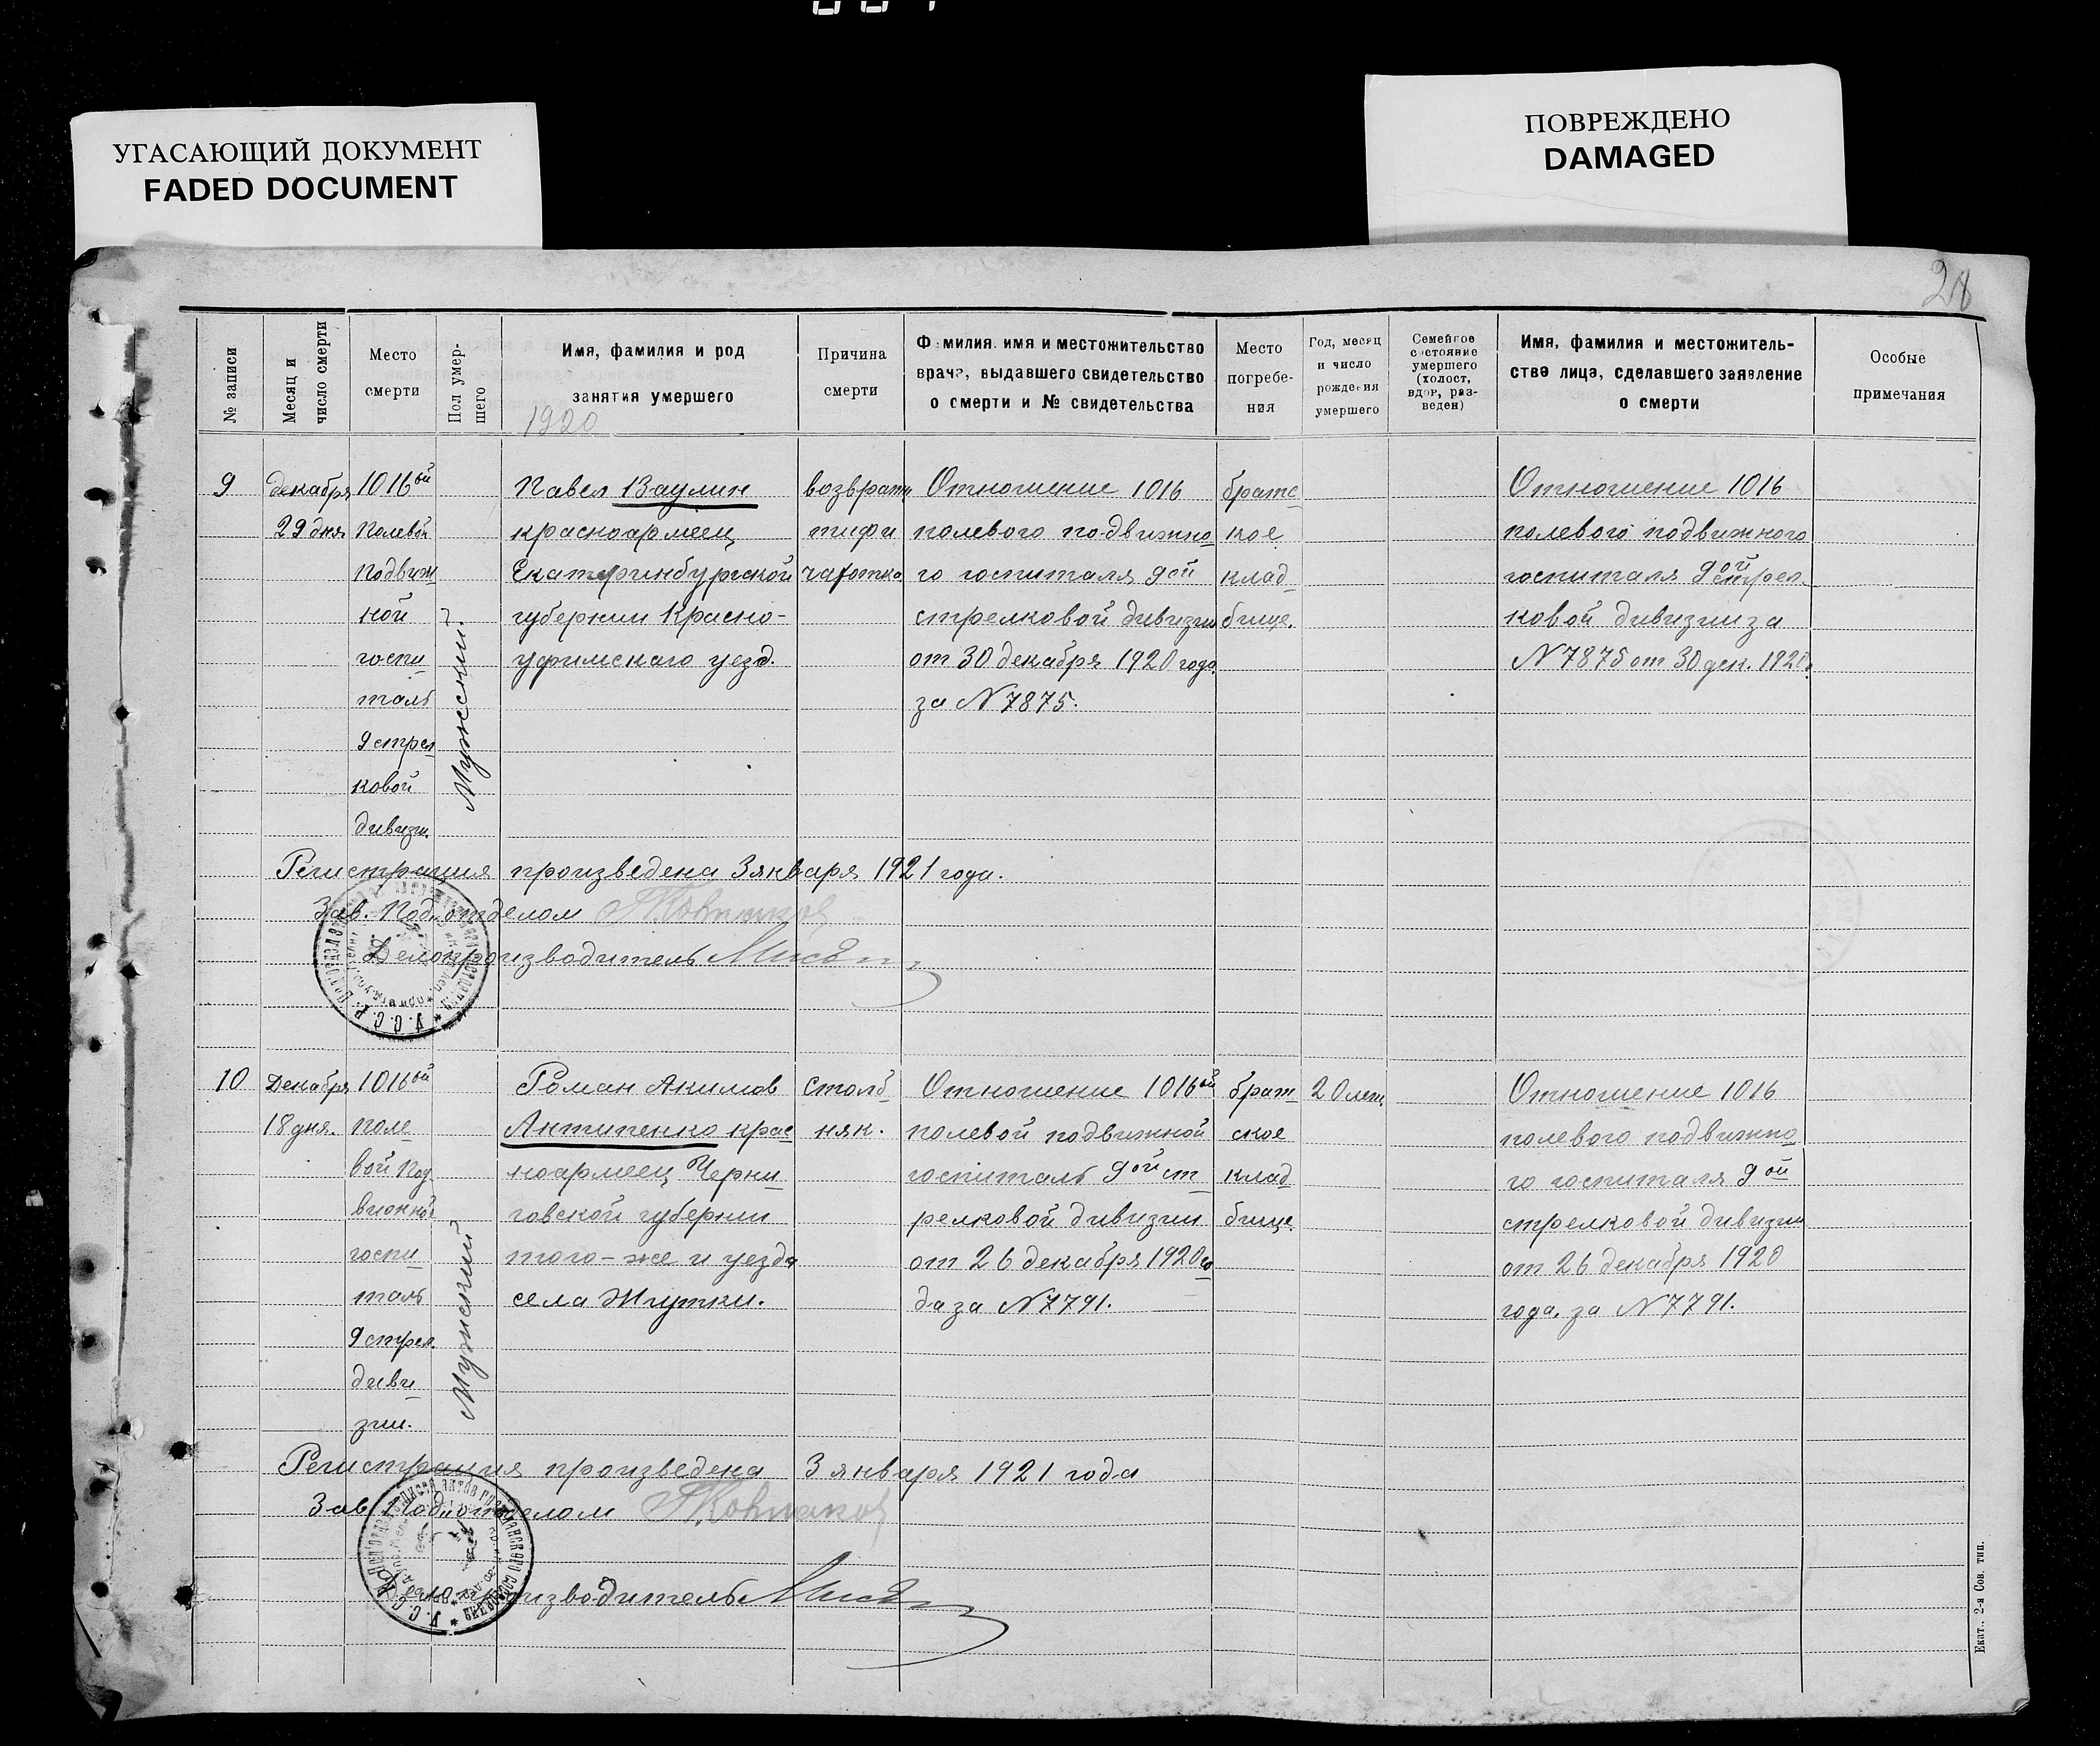 УГАСАЮЩИЙ ДОКУМЕНТ
FADED DOCUMENT
ПОВРЕЖДЕНО
DAMAGED
28
№ записи
Месяц и
число смерти
Место
смерти
Пол умер-
шего
Имя, фамилия и род
занятия умершего
1920
Причина
смерти
Фамилия, имя и местожительство
врача, выдавшего свидетельство
о смерти и № свидетельства
Место
погребе-
ния
Год, месяц
и число
рождения
умершего
Семейное
состояние
умершего
(холост,
вдов, раз-
веден)
Имя, фамилия и местожитель-
ство лица, сделавшего заявление
о смерти
Особые
примечания
9
декабря
29 дня
1016ой
полевой
подвиж
ной
госпи
таль
9 стрел
ковой
дивизи.
Мужеский.
Павел Ваулин
красноармеец
Екатеринбургской
губернии Красно-
уфимскаго уезд.
возвратн
тифи
чахотка
Отношение 1016
полевого подвижно
го госпиталя 9ой
стрелковой дивизии
от 30 декабря 1920 года
за N 7875.
братс
кое
клад
бище.
Отношение 1016
полевого подвижного
госпиталя 9ой стрел
ковой дивизии за
N 7875 от 30 дек. 1920г
Регистрация произведена 3 января 1921 года.
Зав. Под. отделом
Делопроизводитель
У.С.С.Р.
10
Декабря
18 дня.
1016ой
поле
вой под
вижной
госпи
таль
9 стрел.
диви
зии.
Мужеский
Роман Акимов
Антипенко крас
ноармеец Черни
говской губернии
того-же и уезда
села Жгутки.
столб
няк.
Отношение 1016ой
полевой подвижной
госпиталь 9ой ст
релковой дивизии
от 26 декабря 1920 го
да за N 7791.
брат
ское
клад
бище.
20 лет.
Отношение 1016
полевого подвижно
го госпиталя 9ой
стрелковой дивизии
от 26 декабря 1920
года. за N 7791.
Регистрация произведена 3 января 1921 года
Зав. Под. отделом
Делопроизводитель
У.С.С.Р.
Екат.. 2-я Сов. тип.